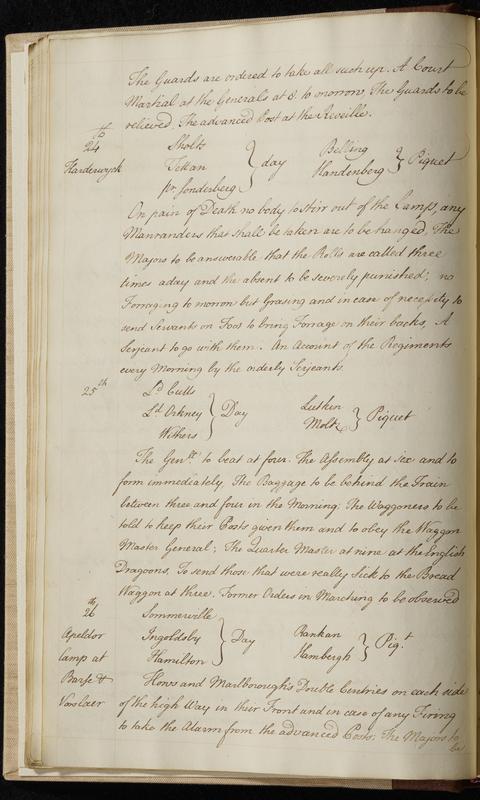 The Guards are ordered to take all such up. A Court
Martial at the Generals at 8. to morrow. The Guards to be
relieved. The advanced Post at the Reveille.
24th Sholts
Harderwyck Tettan } day
pr. Sonderberg
Belling
Handenberg } Piquet
On pain of Death no body to Stirr out of the Camp, any
Manranders that shall be taken are to be hanged. The
Majors to be answerable that the Rolls are called three
times a day and the absent to be severely punished; no
Forraging to morrow but Grasing and in case of necessity to
send Servants on Foot to bring Forrage on their backs, A
Serjeant to go with them. An Account of the Regiments
every Morning by the orderly Serjeants.
25th Ld. Cutts
Ld. Orkney } Day
Withers
Luthen
Moltz } Piquet
The Genll. to beat at four. The Assembly at six and to
form immediately. The Baggage to be behind the Train
between three and four in the Morning: The Waggoners to be
told to keep their Posts given them and to obey the Waggon
Master General; The Quarter Master at nine at the English
Dragoons, To send those that were really Sick to the Bread
Waggon at three. Former Orders in Marching to be observed
26th Sommerville
Apeldor Ingoldsby } Day
Camp at Hamilton
Rankan
Hambergh } Piqt.
Barse & Hows and Marlborough's Double Centries on each side
Vaslaer of the high Way in their Front and in case of any Firing
to take the Alarm from the advanced Posts: The Majors to
be